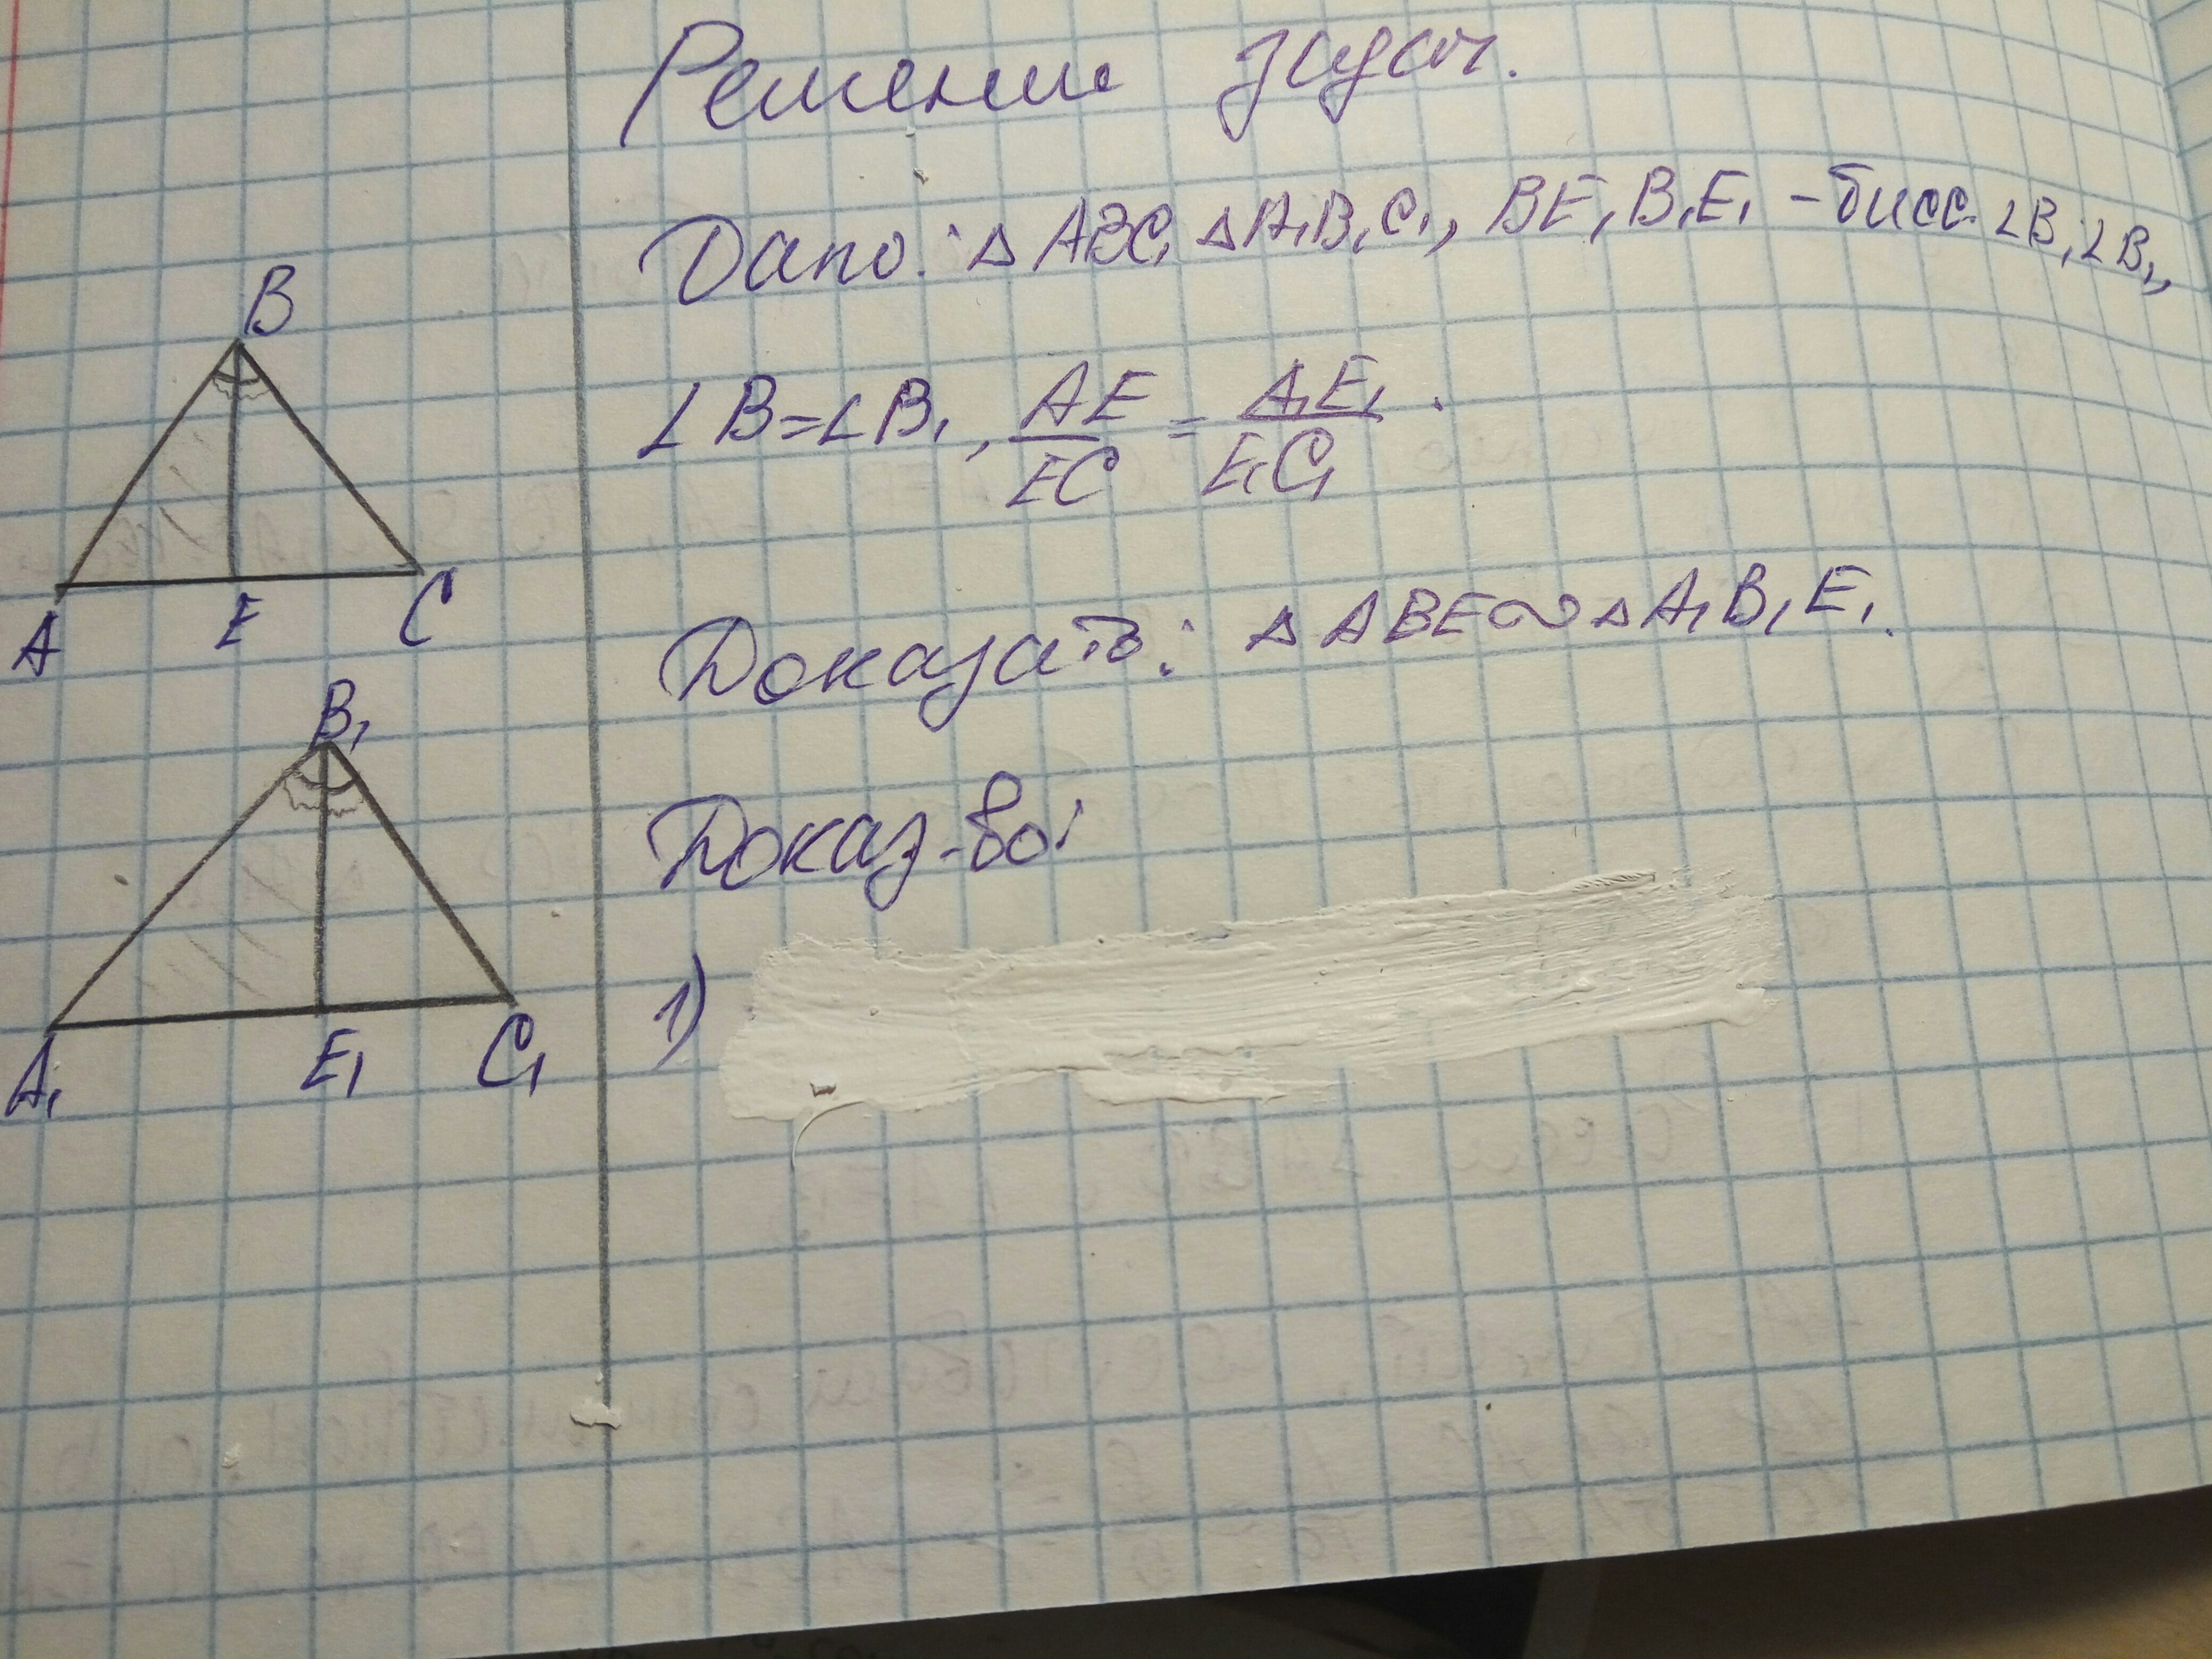 Решение задач.
Дано: △ ABC, △ A₁B₁C₁, BE, B₁E₁ - бисс. ∠B, ∠B₁,
∠B=∠B₁, AE/EC = A₁E₁/E₁C₁.
Доказать: △ ABE∾△ A₁B₁E₁.
Доказ-во:
1)
B
A
E
C
B₁
A₁
E₁
C₁